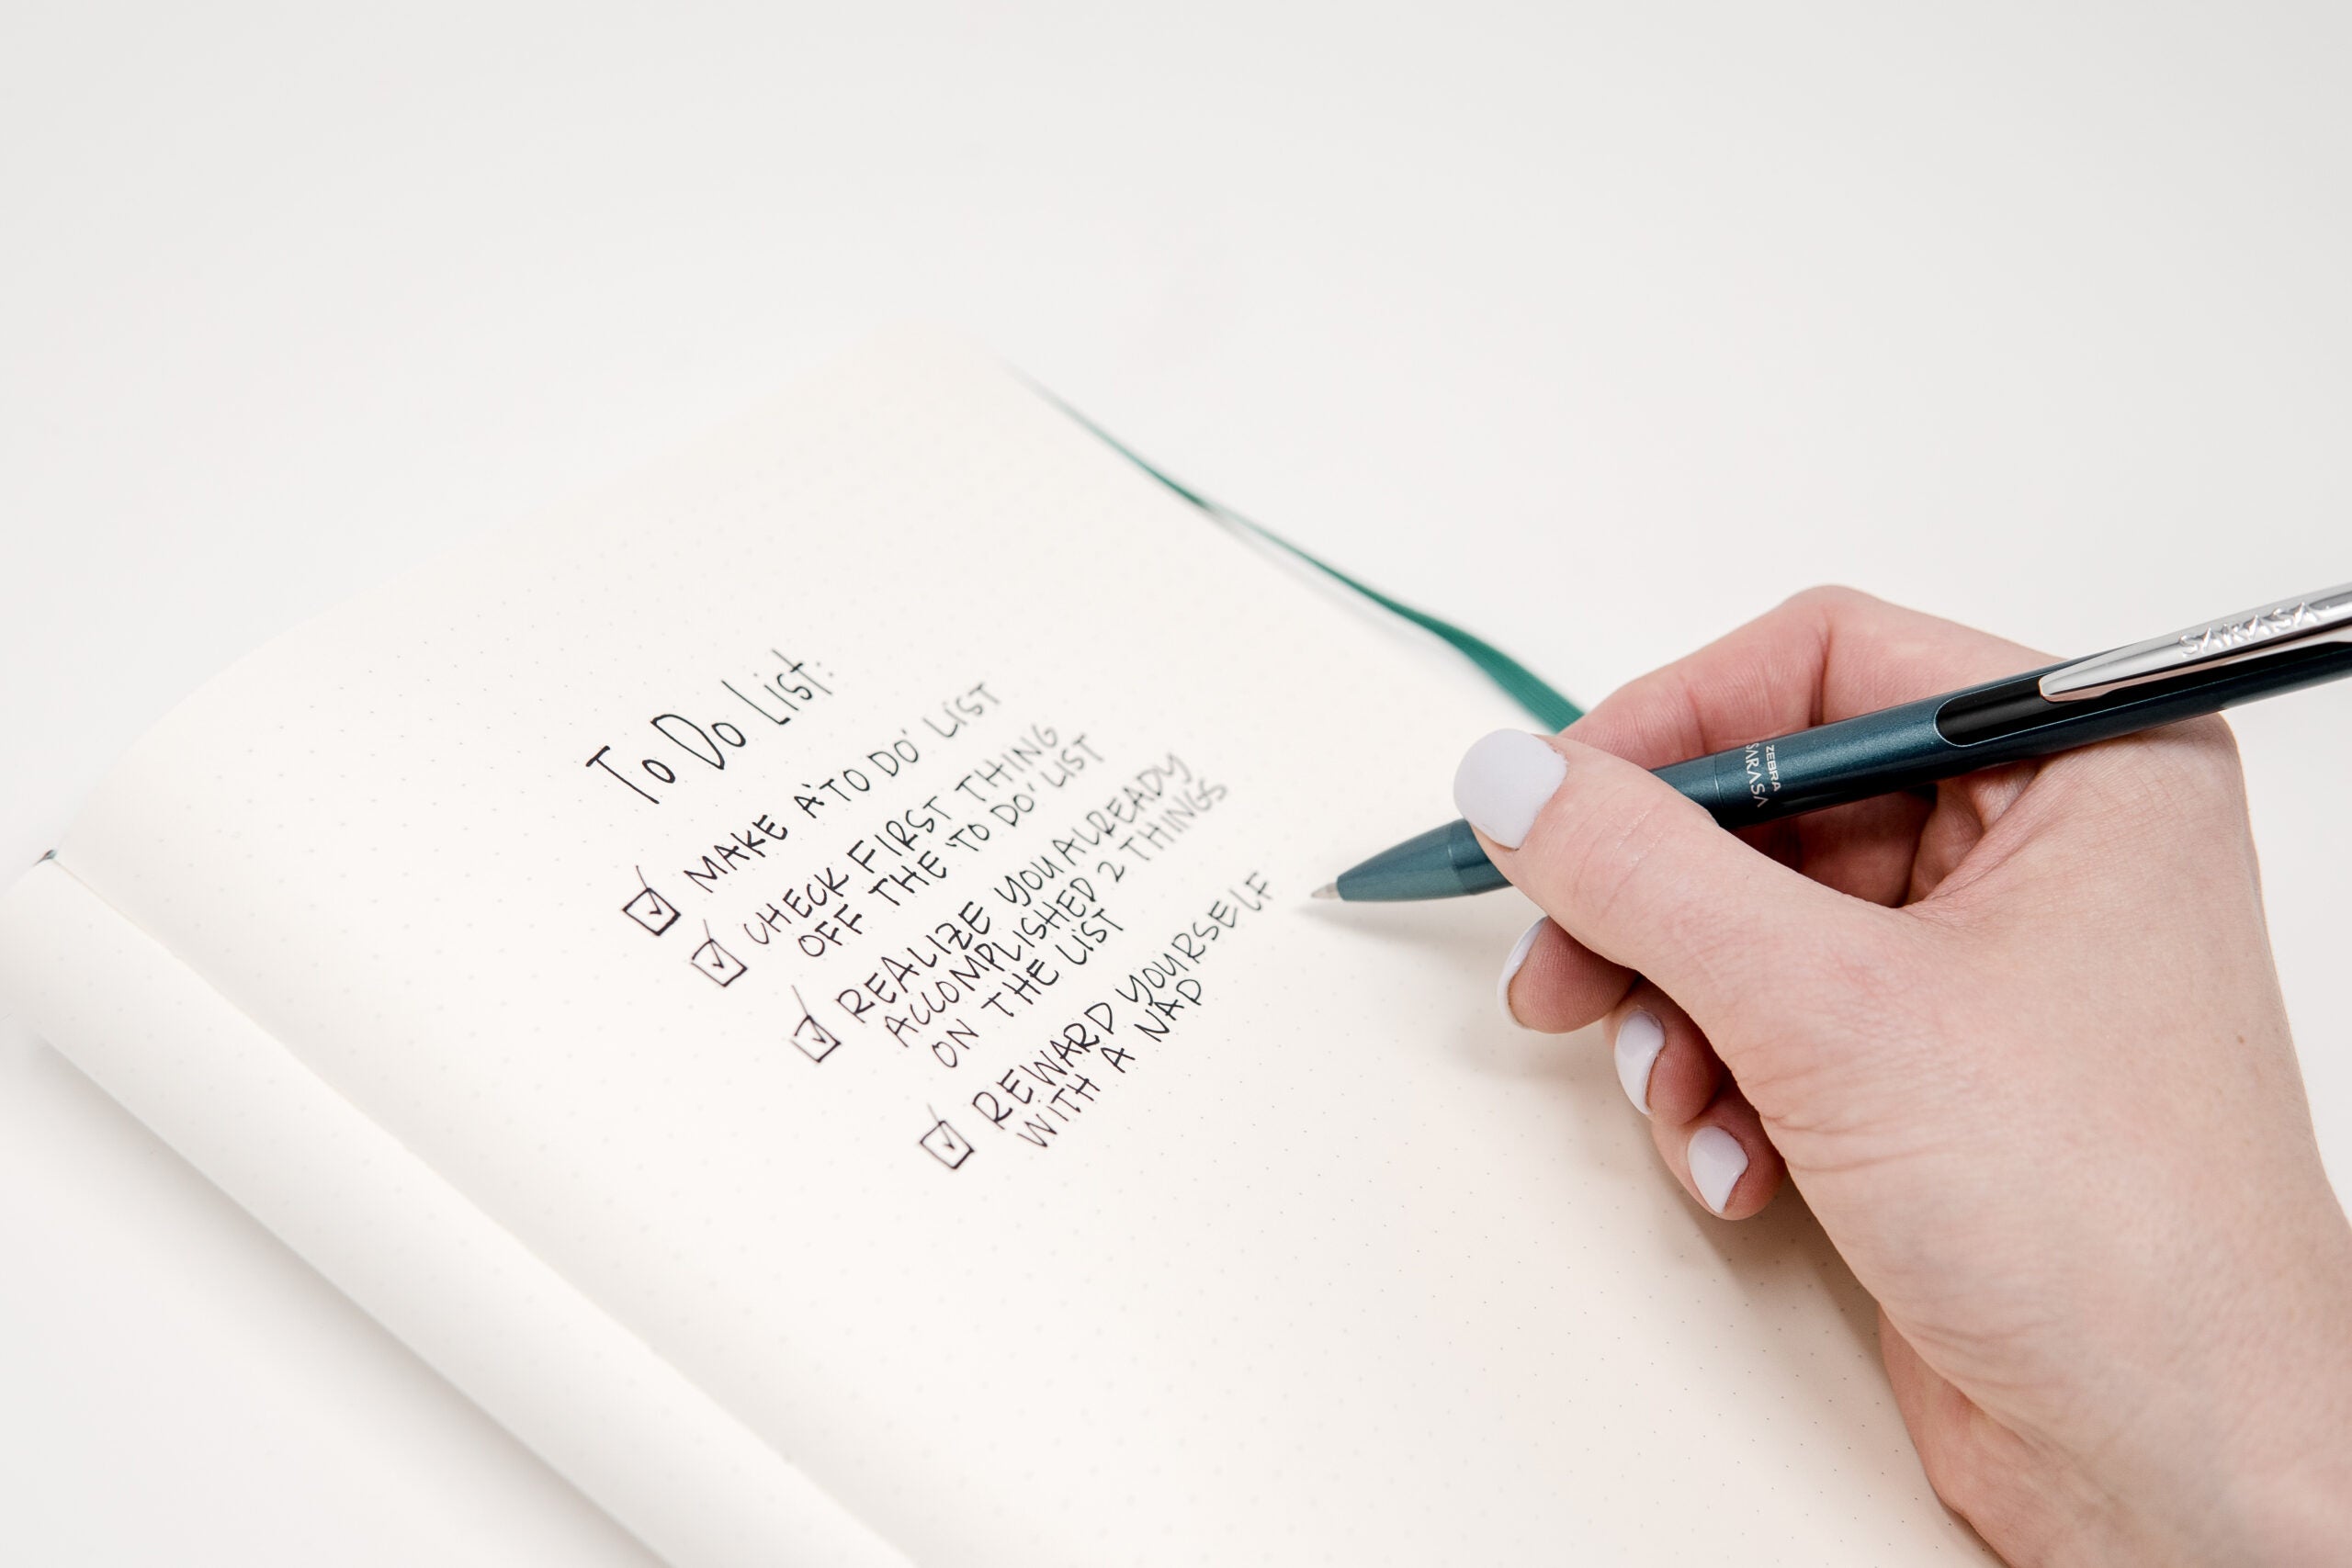 To Do List:
MAKE A 'TO DO' LIST
CHECK FIRST THING
OFF THE 'TO DO' LIST
REALIZE YOU ALREADY
ACCOMPLISHED 2 THINGS
ON THE LIST
REWARD YOURSELF
WITH A NAP
SARASA
ZEBRA
SARASA